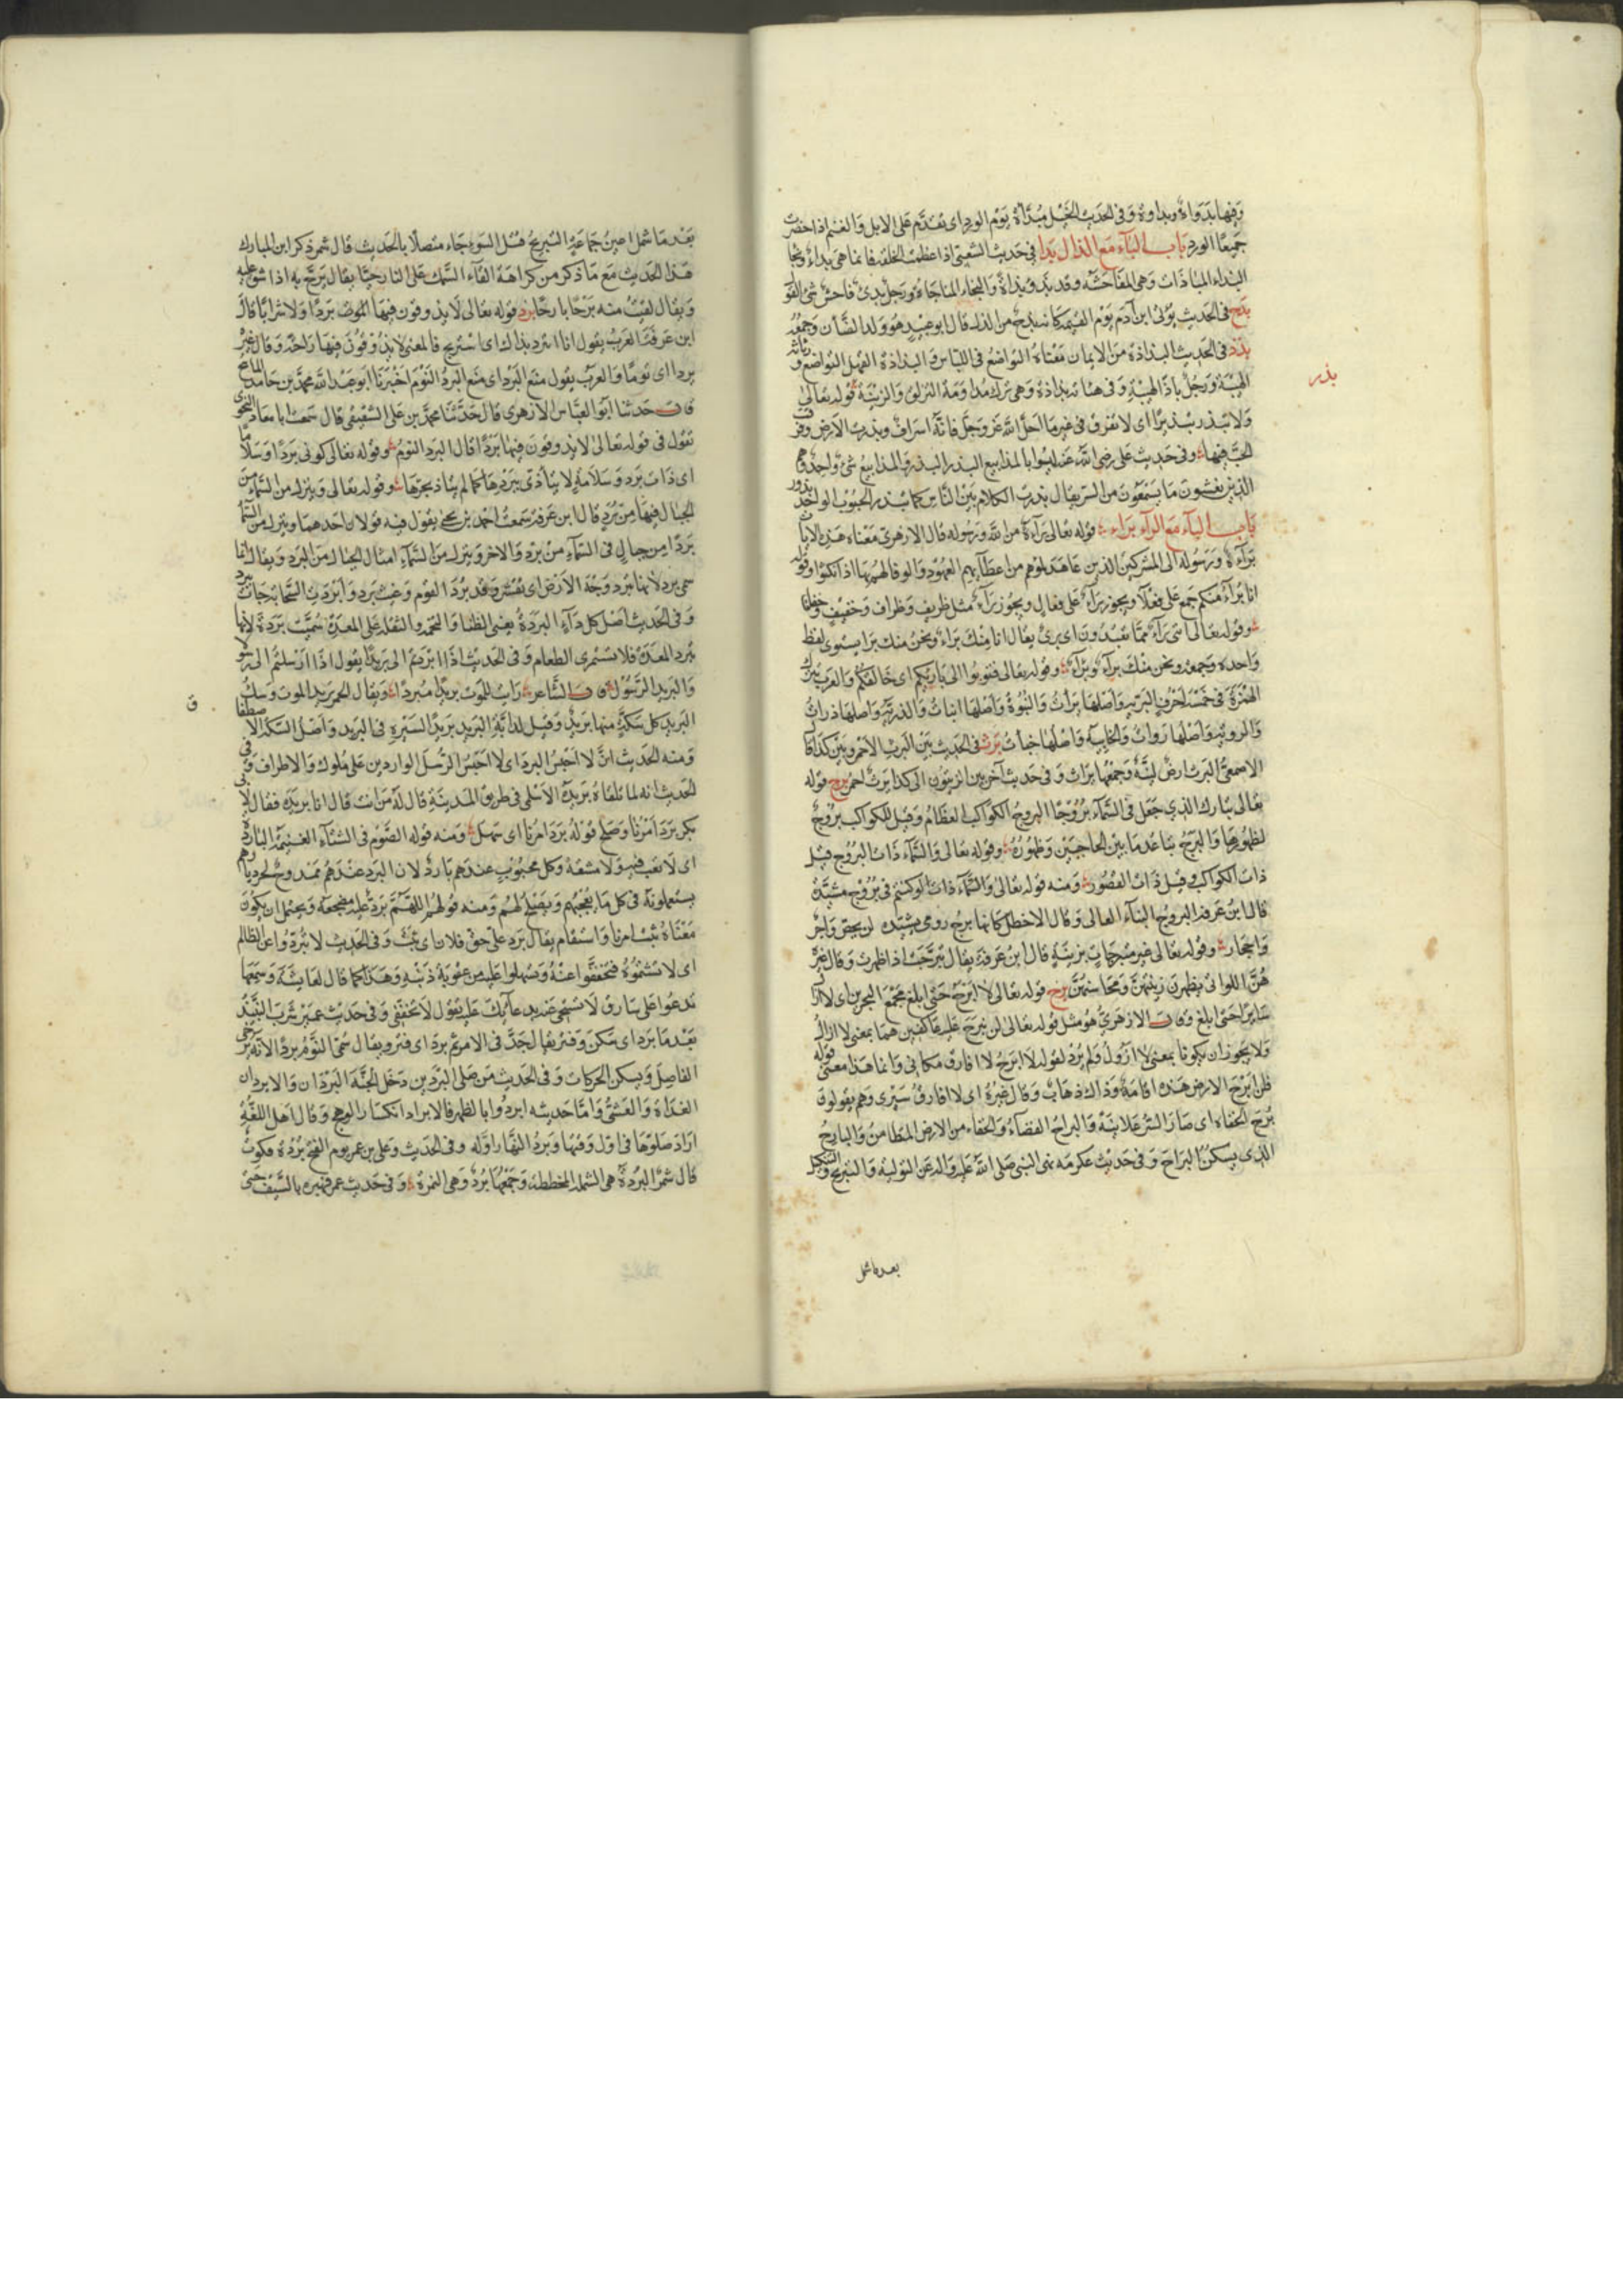 وفيها بدواة وبداوة وفي الحديث الخيل مبدأة يوم الورد اي تقدم على الابل والغنم اذا حضرت
جميعا الورد باب الباء مع الذال بذا في حديث الشعبي اذا عظمت الخلقة فانما هي بذاء ونجا
البذاء المباذات وهي المفاحشة وقد بذو بذاة والنجاء المناجاة ورجل بذي فاحش القو
بذج في الحديث يؤتى ابن آدم يوم القيمة كانه بذج من الذل قال ابو عبيد هو ولد الضأن وجمعه
بذذ في الحديث البذاذة من الايمان معناه التواضع في اللباس والبذاذة التواضع و رثاثة
الهيئة ورجل باذ الهيئة وفي هيئاته بذاذة وهي ترك مداومة التزلق والزينة قوله تعالى
بذر
ولا تبذر تبذيرا اي لا تفرق في غير ما احل الله عز وجل فانه اسراف وبذرت الارض
الحب فيها وفي حديث علي رضي الله عنه ليسوا بالمذاييع البذر والمذاييع شئ واحد وهم
الذين يفشون ما يسمعون من السر يقال بذرت الكلام بين الناس كما تبذر الحبوب الواحد بذور
باب الباء مع الراء براء قوله تعالى براءة من الله ورسوله قال الازهري معناه هذه الايات
براءة ورسوله الى المشركين الذين عاهدتموهم من اعطائهم العهود والوفا لهم بها اذا نكثوا وقوله
انا برآء منكم جمع على فعلاء ويجوز براء على فعال ويجوز براء مثل ظريف وظراف وخفيف وخفاف
وقوله تعالى انني براء مما تعبدون اي بري يقال انا منك براء ونحن منك برا يستوى لفظ
واحده وجمعه ونحن منك براء وبراء وقوله تعالى فتوبوا الى بارئكم اي خالقكم والعرب تترك
الهمزة في خمسة احرف البرية واصلها برأت والنبوة واصلها انبات والذرية واصلها ذرات
والروية واصلها روات والخابية واصلها خبأت برث في الحديث بين البرث الاحمر وبين كذا قال
الاصمعي البرث ارض لينة وجمعها براث وفي حديث آخر بين الزيتون الى كذا برث احمر برج قوله
تعالى تبارك الذي جعل في السماء بروجا البروج الكواكب العظام وقيل للكواكب بروج
لظهورها والبرج تباعد ما بين الحاجبين وظهوره وقوله تعالى والسماء ذات البروج قيل
ذات الكواكب وقيل ذات القصور ومنه قوله تعالى ولو كنتم في بروج مشيدة
قال ابن عرفة البروج البناء العالي وقال الاخطل كانها برج رومي يشيده لز بجص واجر
واحجار وقوله تعالى غير متبرجات بزينة قال ابن عرفة يقال تبرجت اذا ظهرت وقال غيره
هن اللواتي يظهرن زينتهن ومحاسنهن برح قوله تعالى لا ابرح حتى ابلغ مجمع البحرين اي لا ازال
سايرا حتى ابلغ وقال الازهري هو مثل قوله تعالى لن نبرح عليه عاكفين هما بمعنى لا ازال
ولا يجوز ان يكونا بمعنى لا ازول ولم يرد لقوله لا ابرح لا افارق مكاني وانما هذا معنى قوله
فلن ابرح الارض هذه اقامة وذاك ذهاب وقال غيره اي لا افارق سيري وهم يقولون
برح الخفاء اي صار السر علانية والبراح الفضاء والخفاء من الارض المتطامن والبارح
الذي يسكن البراح وفي حديث عكرمة نهى النبي صلى الله عليه واله عن التولية والتبريح
بعد ما شمل
بعد ما شمل امين جماعة التبريح قتل السوء جاء متصلا بالحديث قال شمر ذكر ابن المبارك
هذا الحديث مع ما ذكر من كراهة القاء السمك على النار حيا يقال برح به اذا شق عليه
ويقال لقيت منه برحا بارحا برد قوله تعالى لا يذوقون فيها الموت بردا ولا شرابا قال
ابن عرفة العرب يقول انا ابترد بذاك اي استريح فالمعنى لا يذوقون فيها راحة وقال غيره
بردا اي نوما والعرب يقول منع البرد اي منع البرد النوم اخبرنا ابو عبد الله محمد بن حامد
قال حدثنا ابو العباس الازهري قال حدثنا محمد بن علي الشقيقي قال سمعت ابا معاذ النحوي
يقول في قوله تعالى لا يذوقون فيها بردا قال البرد النوم وقوله تعالى كوني بردا وسلاما
اي ذات برد وسلامة لا يتأذى ببردها كما لم يتاذ بحرها وقوله تعالى وينزل من السماء من
الجبال فيها من برد قال ابن عرفة سمعت احمد بن يحيى يقول فيه قولان احدهما وينزل من السماء
بردا من جبال في السماء من برد والاخر وينزل من السماء امثال الجبال من البرد ويقال انما
سمي برد لانها تبرد وجه الارض اي تقشر وقد برد القوم وابردت السحابة جاءت ببرد
وفي الحديث اصل كل داء البردة يعني الظنا والتخمة والثقلة على المعدة سميت بردة لانها
تبرد المعدة فلا تستمري الطعام وفي الحديث اذا ابردتم الي بريدا يقول اذا ارسلتم الي رسولا
والبريد الرسول وقال الشاعر رأيت للموت بريدا مبردا ويقال الحمى بريد الموت وسكك
البريد كل سكة منها بريد وقيل لدابة البريد بريد لسيره في البريد واصل السكة الاصطفا
ق
ومنه الحديث اني لا احبس البرد اي لا احبس الرسل الواردين على ملوك والاطراف وفي
الحديث انه لما تلقاه بريدة الاسلمي في طريق المدينة قال له من انت قال انا بريدة فقال لابي
بكر برد امرنا وصلح قوله برد امرنا اي سهل ومنه قوله الصوم في الشتاء الغنيمة الباردة
اي لا تعب فيه ولا مشقة وكل محبوب عندهم بارد لان البرد عندهم ممدوح
يستعملونه في كل ما يعجبهم ويصلح لهم ومنه قولهم اللهم برد عليه مضجعه ويحتمل ان يكون
معناه ثبت امرنا واستقام يقال برد على حق فلان اي ثبت وفي الحديث لا تبردوا عن الظالم
اي لا تشتموه فتخففوا عنه وتسهلوا عليه من عقوبة ذنبه وهذا كما قال لعايشة وسمعها
تدعوا على سارق لا تسبخي عنه بدعائك عليه يقول لا تخففي وفي حديث عمر شرب النبيذ
بعد ما برد اي سكن وفتر يقال جد في الامر ثم برد اي فتر ويقال سمي النوم بردا لانه يرخي
المفاصل ويسكن الحركات وفي الحديث من صلى البردين دخل الجنة البردان والابردان
الغداة والعشي واما حديثه ابردوا بالظهر فالابراد انكسار الوهج وقال اهل اللغة
اراد صلوتها في اول وقتها وبرد النهار اوله وفي الحديث وعلى بن عمر يوم الفتح بردة فلوت
قال شمر البردة هي الشملة المخططة وجمعها برد وهي النمرة وفي حديث عمر فهبره بالسيف حتى